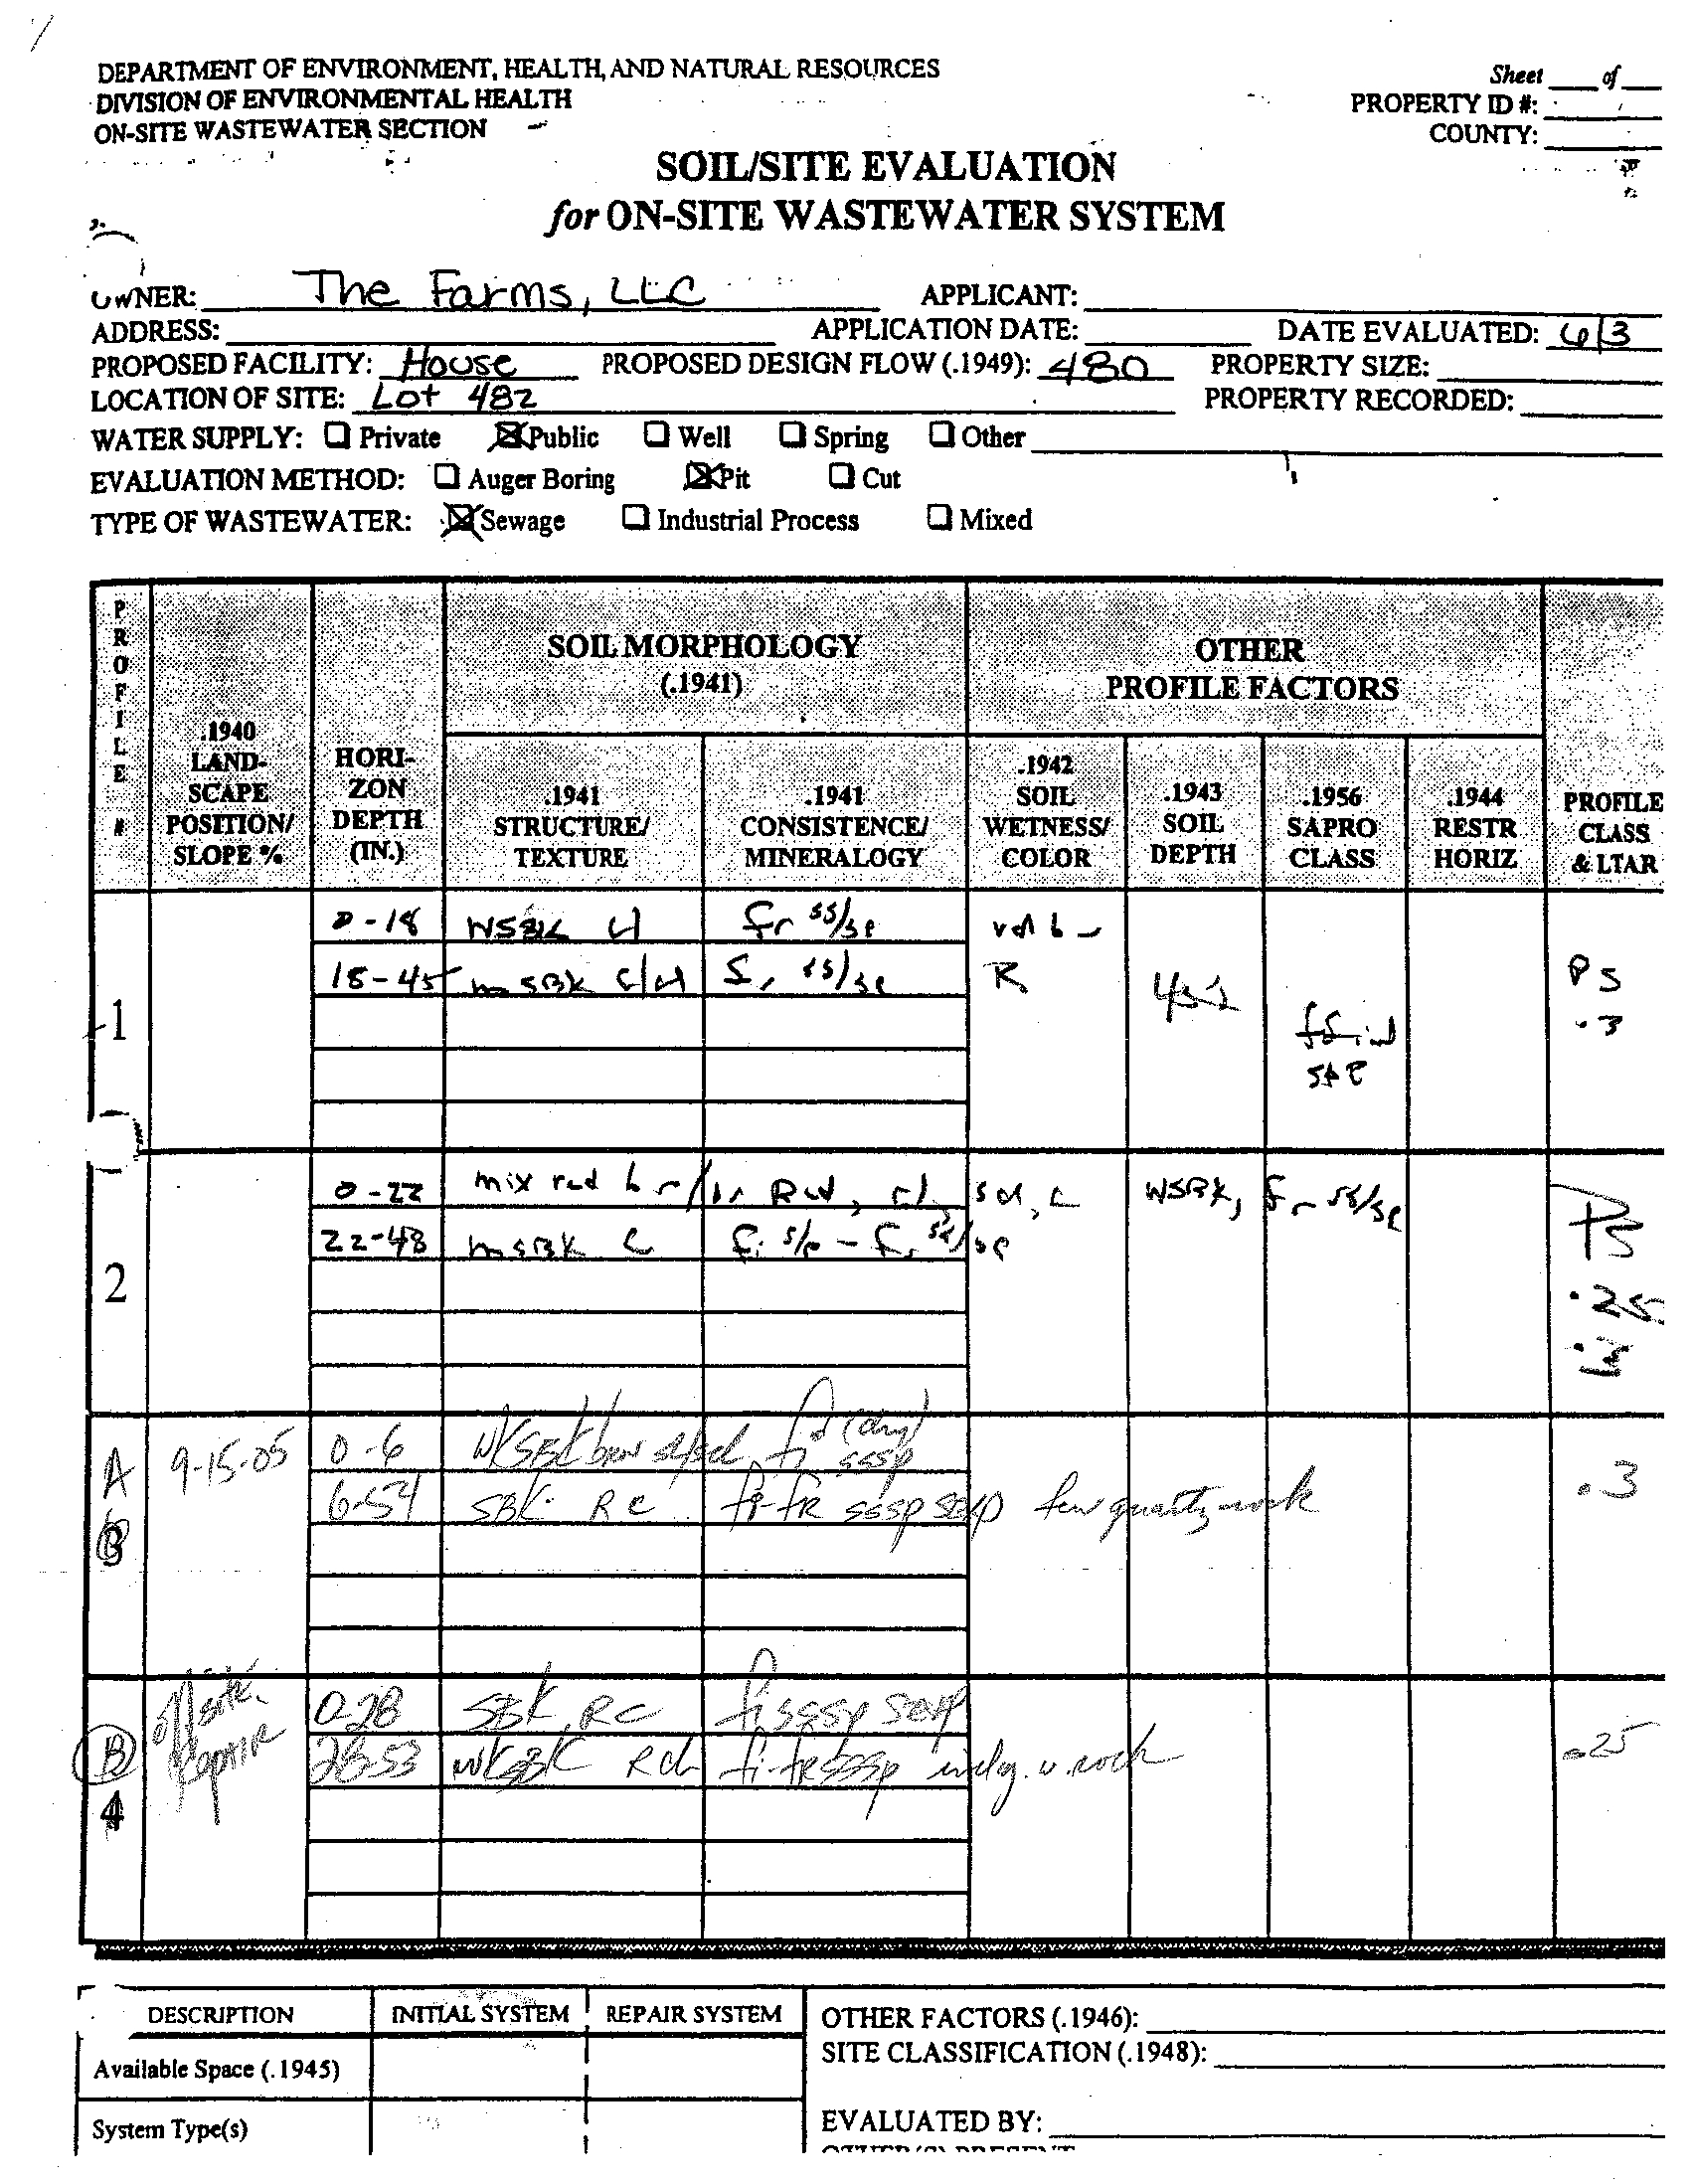 DEPARTMENT OF ENVIRONMENT, HEALTH, AND NATURAL RESOURCES
DIVISION OF ENVIRONMENTAL HEALTH
ON-SITE WASTEWATER SECTION
Sheet ___ of ___
PROPERTY ID #:
COUNTY:
SOIL/SITE EVALUATION
for ON-SITE WASTEWATER SYSTEM
OWNER: The Farms, LLC APPLICANT:
ADDRESS: APPLICATION DATE: DATE EVALUATED: 6/3
PROPOSED FACILITY: House PROPOSED DESIGN FLOW (.1949): 480 PROPERTY SIZE:
LOCATION OF SITE: Lot 482 PROPERTY RECORDED:
WATER SUPPLY: ☐ Private ☒ Public ☐ Well ☐ Spring ☐ Other
EVALUATION METHOD: ☐ Auger Boring ☒ Pit ☐ Cut
TYPE OF WASTEWATER: ☒ Sewage ☐ Industrial Process ☐ Mixed
PROFILE #
.1940 LAND-SCAPE POSITION/ SLOPE %
HORI-ZON DEPTH (IN.)
SOIL MORPHOLOGY
(.1941)
.1941 STRUCTURE/ TEXTURE
.1941 CONSISTENCE/ MINERALOGY
OTHER
PROFILE FACTORS
.1942 SOIL WETNESS/ COLOR
.1943 SOIL DEPTH
.1956 SAPRO CLASS
.1944 RESTR HORIZ
PROFILE CLASS & LTAR
1
0-18 WSBK cl fr ss/sp
18-45 mSBK c/cl ss/sp R
PS
.3
2
0-22 mix red br/br Red, cl, scl, c WSBK, fr ss/sp
22-48 mSBK c fi s/p - fr ss/sp
PS
.25
A 3 9-15-05
0-6 WKSBK brw (dry) sssp
6-54 SBK RC fi-fR sssp sexp few quartz rock
.3
B 4 offsite. Repair
0-28 SBK, RC fi sssp sexp
28-53 WKSBK Rcl fi-fR sssp w. rock
.25
DESCRIPTION INITIAL SYSTEM REPAIR SYSTEM
Available Space (.1945)
System Type(s)
OTHER FACTORS (.1946):
SITE CLASSIFICATION (.1948):
EVALUATED BY:
OTHER(S) PRESENT